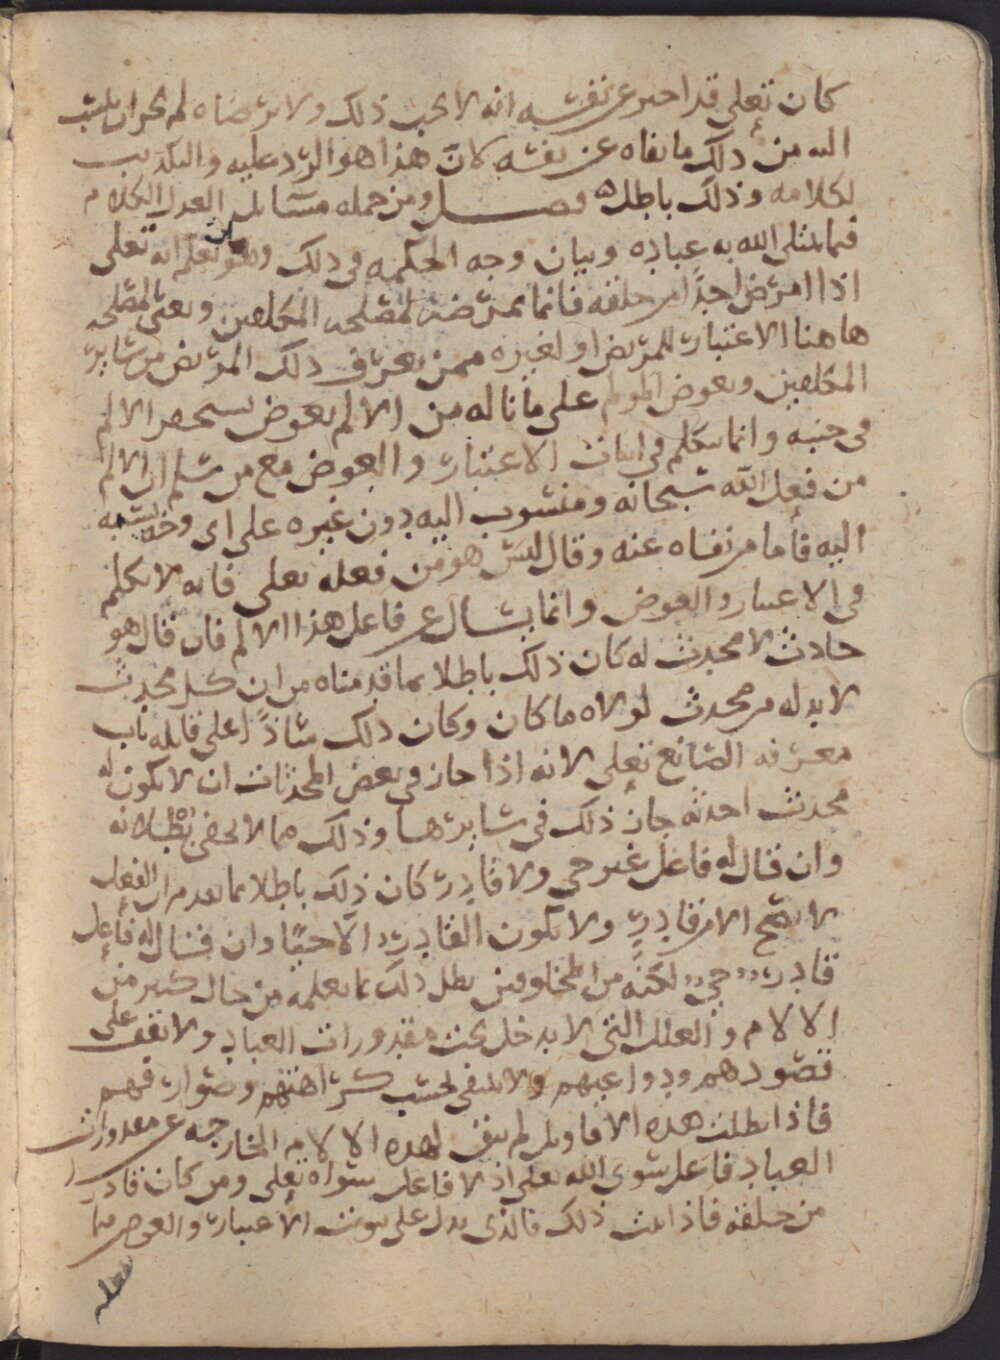 كان تعلى قد اخبر عن نفسه انه لا يحب ذلك ولا يرضاه لم يجز ان ينسب
اليه من ذلك ما نفاه عن نفسه لان هذا هو الرد عليه والتكذيب
لكلامه وذلك باطل فصل ومن جمله مسائل العدل الكلام
فيما يبتلي الله به عباده وبيان وجه الحكمه في ذلك ونحن نعلم انه تعلى
اذا امرض احدًا من خلقه فانما يمرضه لمصلحه المكلفين ونعني بالمصلحه
هاهنا الاعتبار للمريض او لغيره ممن يعرف ذلك المرض من سائر
المكلفين ويعوض المولم على ما ناله من الالم بعوض يستحقر الالم
في جنبه وانما يتكلم في اثبات الاعتبار والعوض مع من سلم ان الالم
من فعل الله سبحانه ومنسوب اليه دون غيره على اي وجه نسبه
اليه فاما من نفاه عنه وقال ليس هو من فعله تعلى فانه لا يكلم
في الاعتبار والعوض وانما يسال عن فاعل هذا الالم فان قال هو
حادث لا محدث له كان ذلك باطلا بما قدمناه من ان كل محدث
لا بد له من محدث لولاه ما كان وكان ذلك سادًا على قائله باب
معرفه الصانع تعلى لانه اذا جاز في بعض المحدثات ان لا يكون له
محدث احدثه جاز ذلك في سايرها وذلك مما لا يخفى بطلانه
وان قال له فاعل غير حي ولا قادر كان ذلك باطلا بما تقدم من ان الفعل
لا يصح الا من قادرٍ ولا يكون القادر الا حيًا وان قال له فاعل
قادر حي لكنه من المخلوقين بطل ذلك بما نعلمه من حال كثير من
الالام والعلل التي لا يدخل تحت مقدورات العباد ولا تقف على
قصودهم ودواعيهم ولا تنتفي بحسب كراهتهم وصوارفهم
فاذا بطلت هذه الاقاويل لم يبق لهذه الالام الخارجه عن مقدورات
العباد فاعل سوى الله تعلى اذ لا فاعل سواه تعلى ومن كان قادرا
من خلقه فاذا ثبت ذلك فالذي يدل على ثبوت الاعتبار والعوض فيما